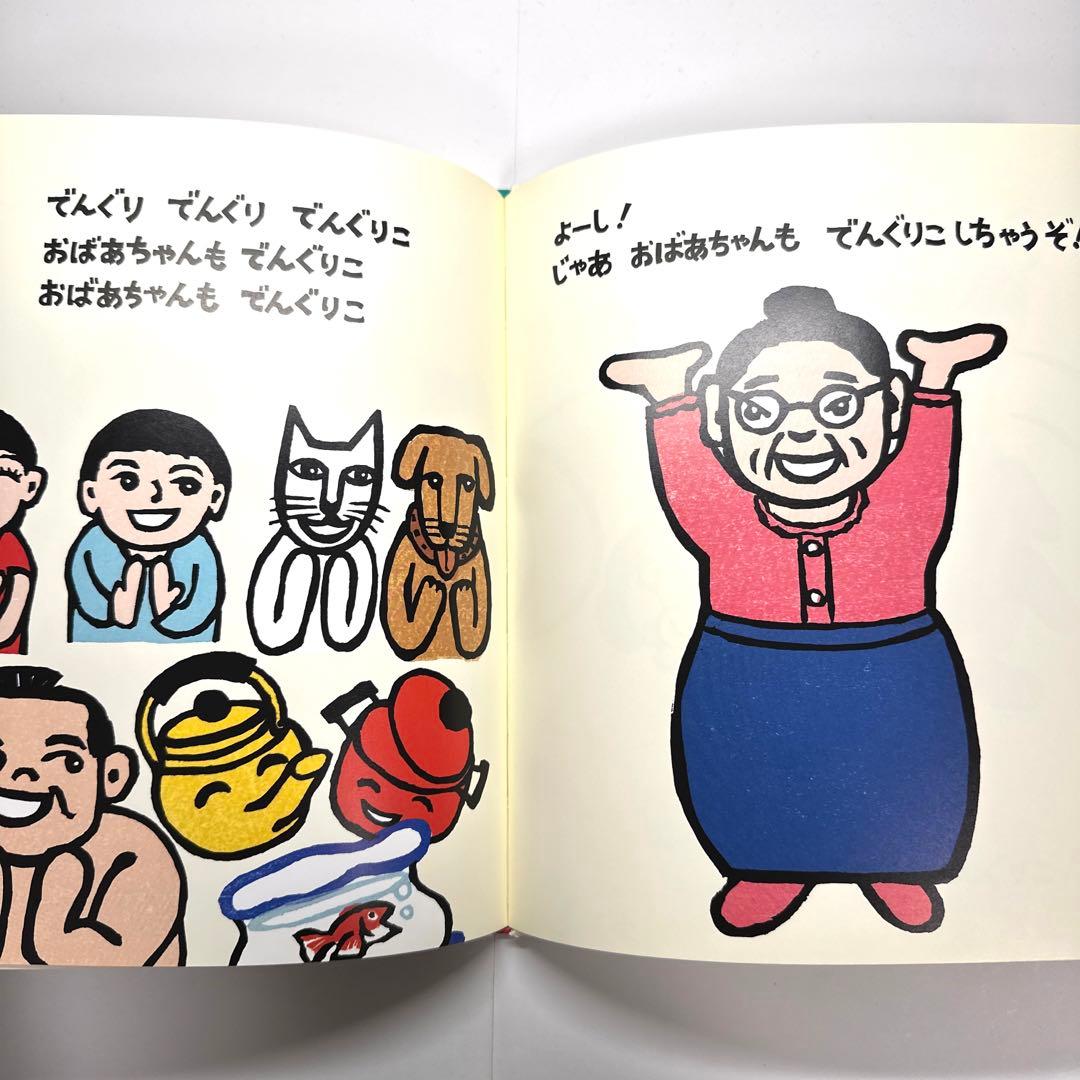 でんぐり でんぐり でんぐりこ
おばあちゃんも でんぐりこ
おばあちゃんも でんぐりこ
よーし!
じゃあ おばあちゃんも でんぐりこ しちゃうぞ!